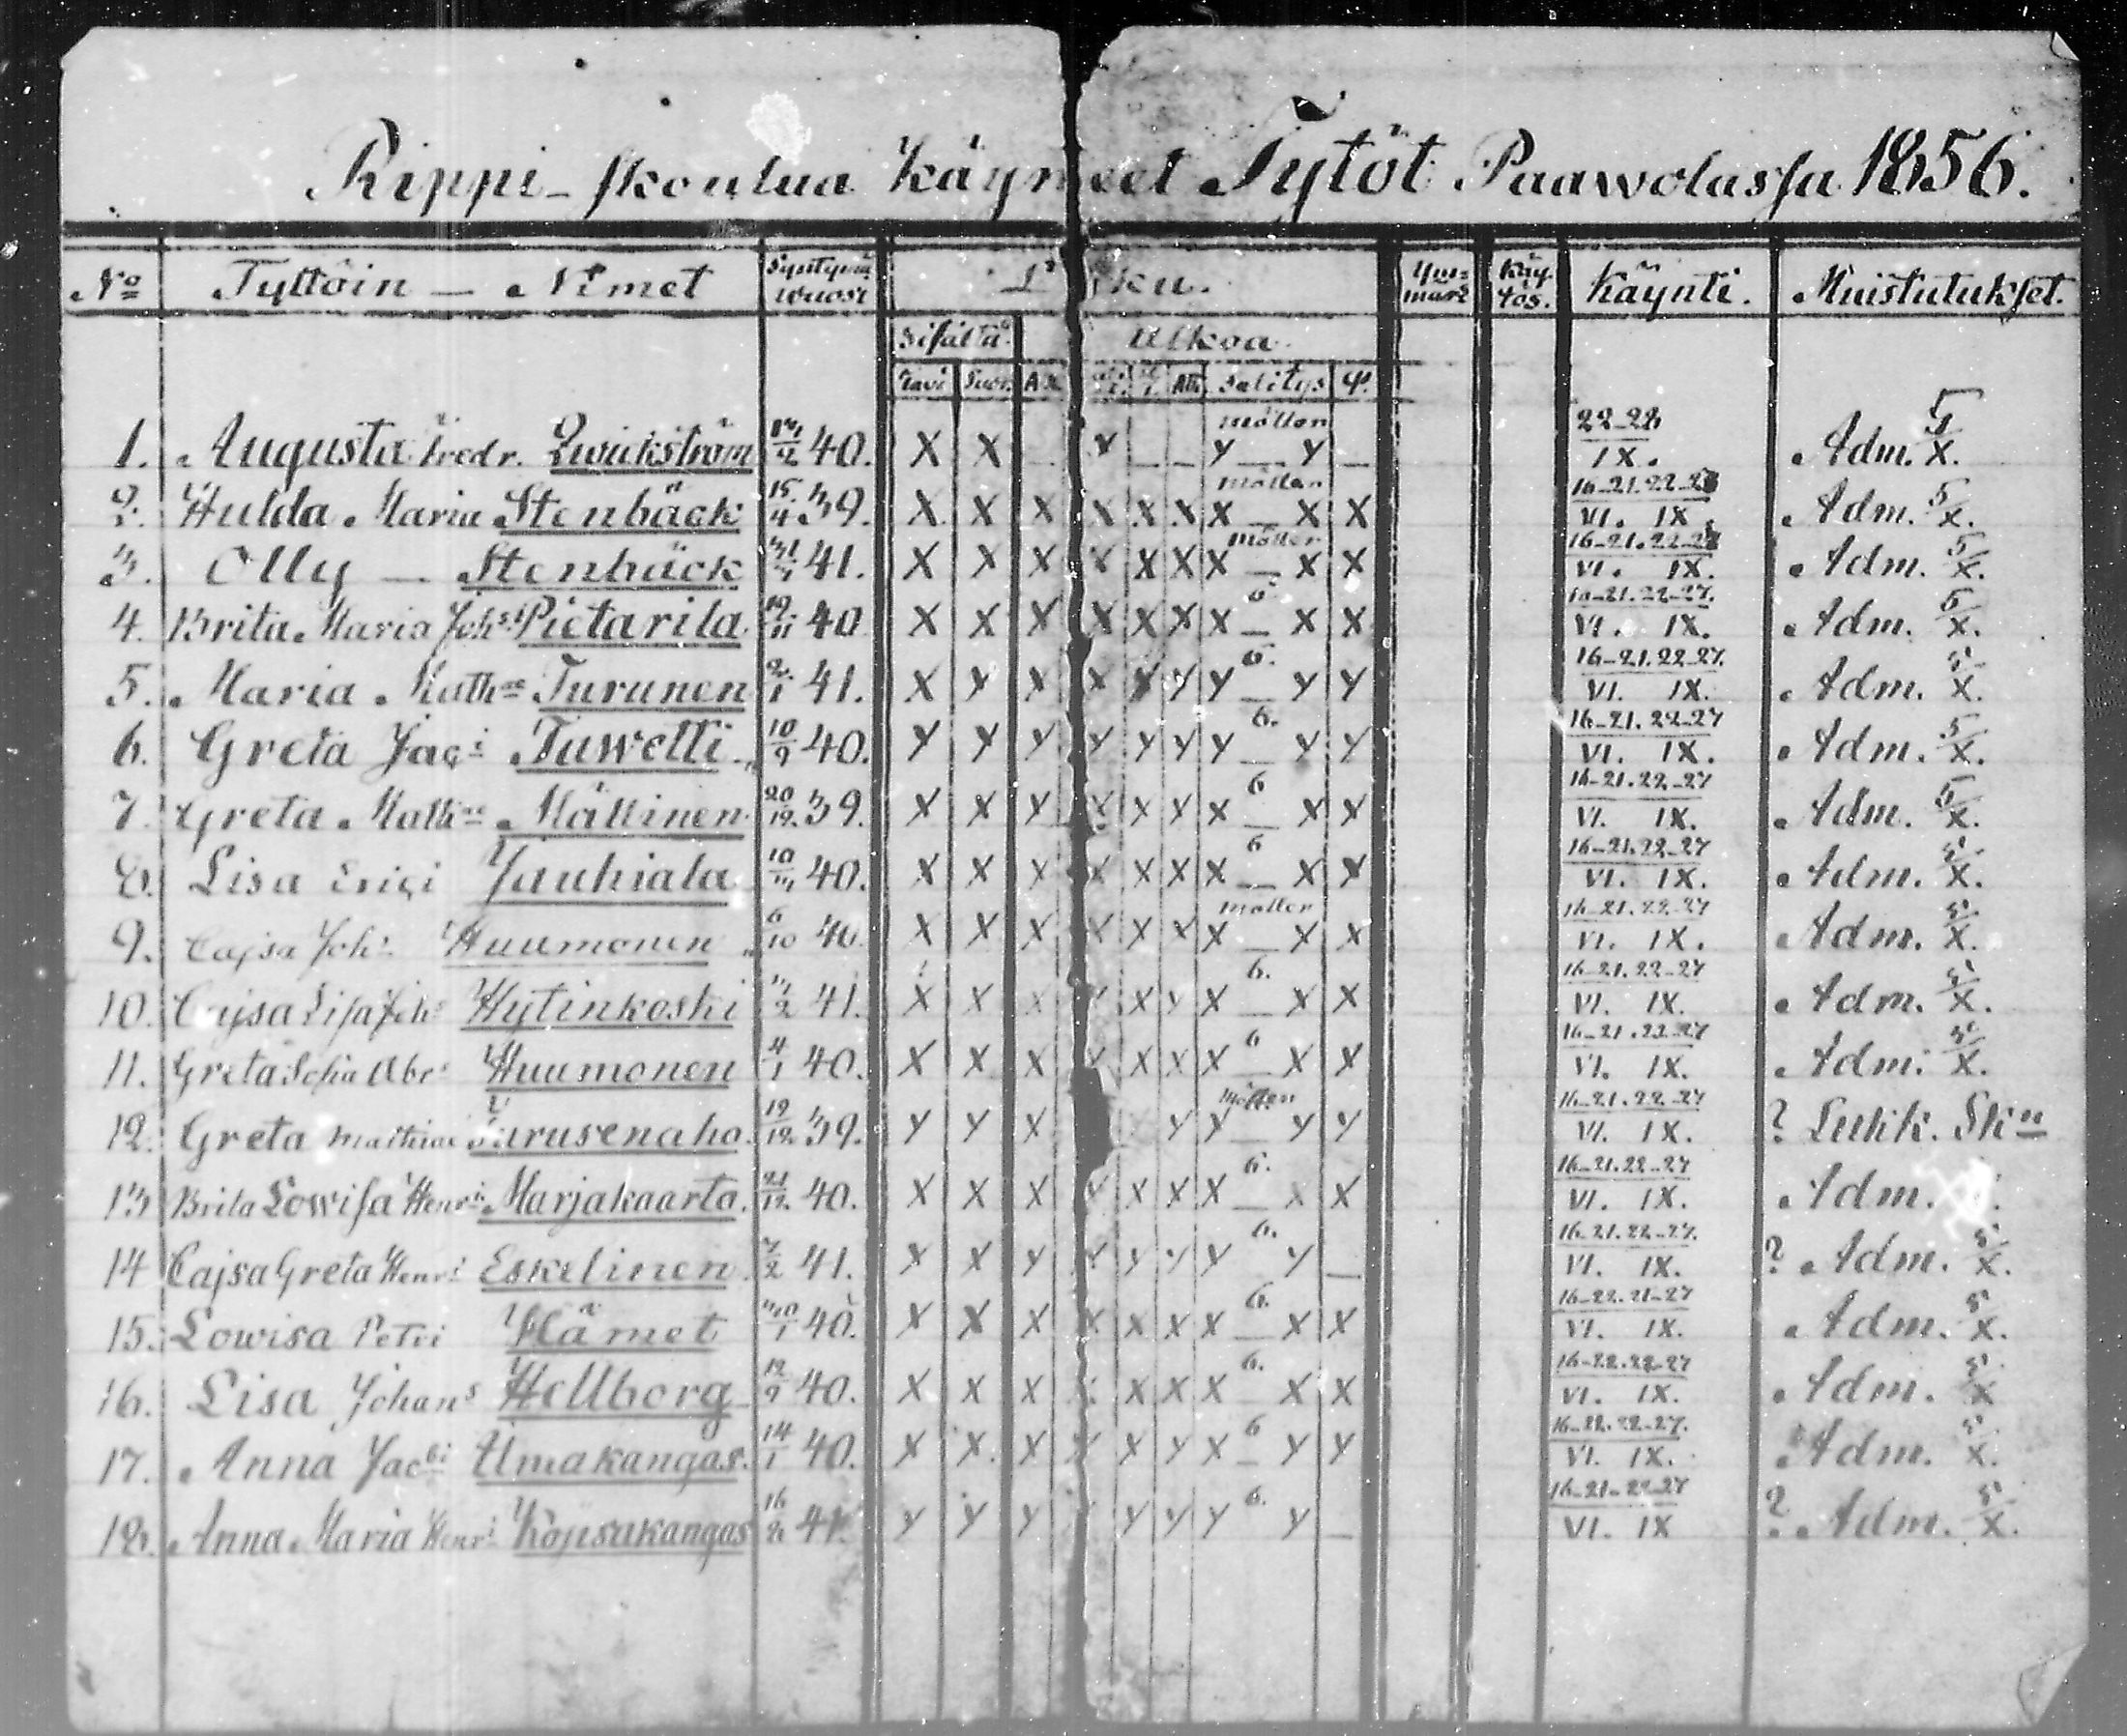 Rippi-skoulua Käyneet Tytöt Paawolassa 1856.
No Tyttöin — Nimet Syntymä wuosi Luku. Ym-märr. Käy-tös. Käynti. Muistutukset.
Sisältä Ulkoa
Tavi Suor. Ab. Ath. Selitys
1. Augusta Fredr. 40. X X Möller y — y — 22-28 IX. Adm. 5/X.
2. Hulda Maria Stenbäck 15/4 39. X X X X X X Möller X — X X 16-21. 22-28 VI. IX. Adm. 5/X.
3. Olly — Stenbäck 41. X X X X X X Möller X — X X 16-21. 22-28 VI. IX. Adm. 5/X.
4. Brita Maria Joh. Pietarila 19/11 40 X X X X X X 6 X — X X 16-21. 22-27. VI. IX. Adm. 5/X.
5. Maria Mathae Turunen 41. X y X X X y 6. y — y y 16-21. 22-27. VI. IX. Adm. 5/X.
6. Greta Jaci Tuwetti 10/9 40. y y y y y y 6. y — y y 16-21. 22-27 VI. IX. Adm. 5/X.
7. Greta Mathae Mällinen 20/12. 39. X X y X X y 6 X — X X 16-21. 22-27 VI. IX. Adm. 5/X.
8. Lisa Erici Jauhiala 40. X X X X X X 6 X — X X 16-21. 22-27 VI. IX. Adm. 5/X.
9. Cajsa Joh. Huumonen 6/10 40. X X X X X X Möller X — X X 16-21. 22-27 VI. IX. Adm. 5/X.
10. Cajsa Lisa Joh. Hytinkoski 41. X X X y X y 6. X — X X 16-21. 22-27 VI. IX. Adm. 5/X.
11. Greta Sofia Abr. Huumonen 4/1 40. X X X X X X 6 X — X X 16-21. 22-27 VI. IX. Adm. 5/X.
12. Greta Mathiae 19/12. 39. y y X y Möller y — y y 16-21. 22-27 VI. IX. ? Lukk. Skn
13 Brita Lowisa Henr. Marjakaarto. 21/12. 40. X X X y X X 6. X — X X 16-21. 22-27 VI. IX. Adm.
14 Cajsa Greta Henr. Eskelinen. 7/2 41. X X y X y y 6. y y — 16. 21. 22-27. VI. IX. ? Adm. 5/X.
15. Lowisa Petri Hämet 40. X X X X X X 6. X — X X 16-22. 21-27 VI. IX. Adm. 5/X.
16. Lisa Johans Hellborg 12/9 40. X X X X X X 6. X — X X 16-22. 22-27 VI. IX. Adm. 5/X
17. Anna Jacbi Ulmakangas. 14/1 40. X X X y X y 6 X — y y 16-22. 22-27. VI. IX. Adm. 5/X.
18. Anna Maria Henr. Köpsakangas 41. y y y y y 6. y y — 16-21-22-27 VI. IX ? Adm. 5/X.